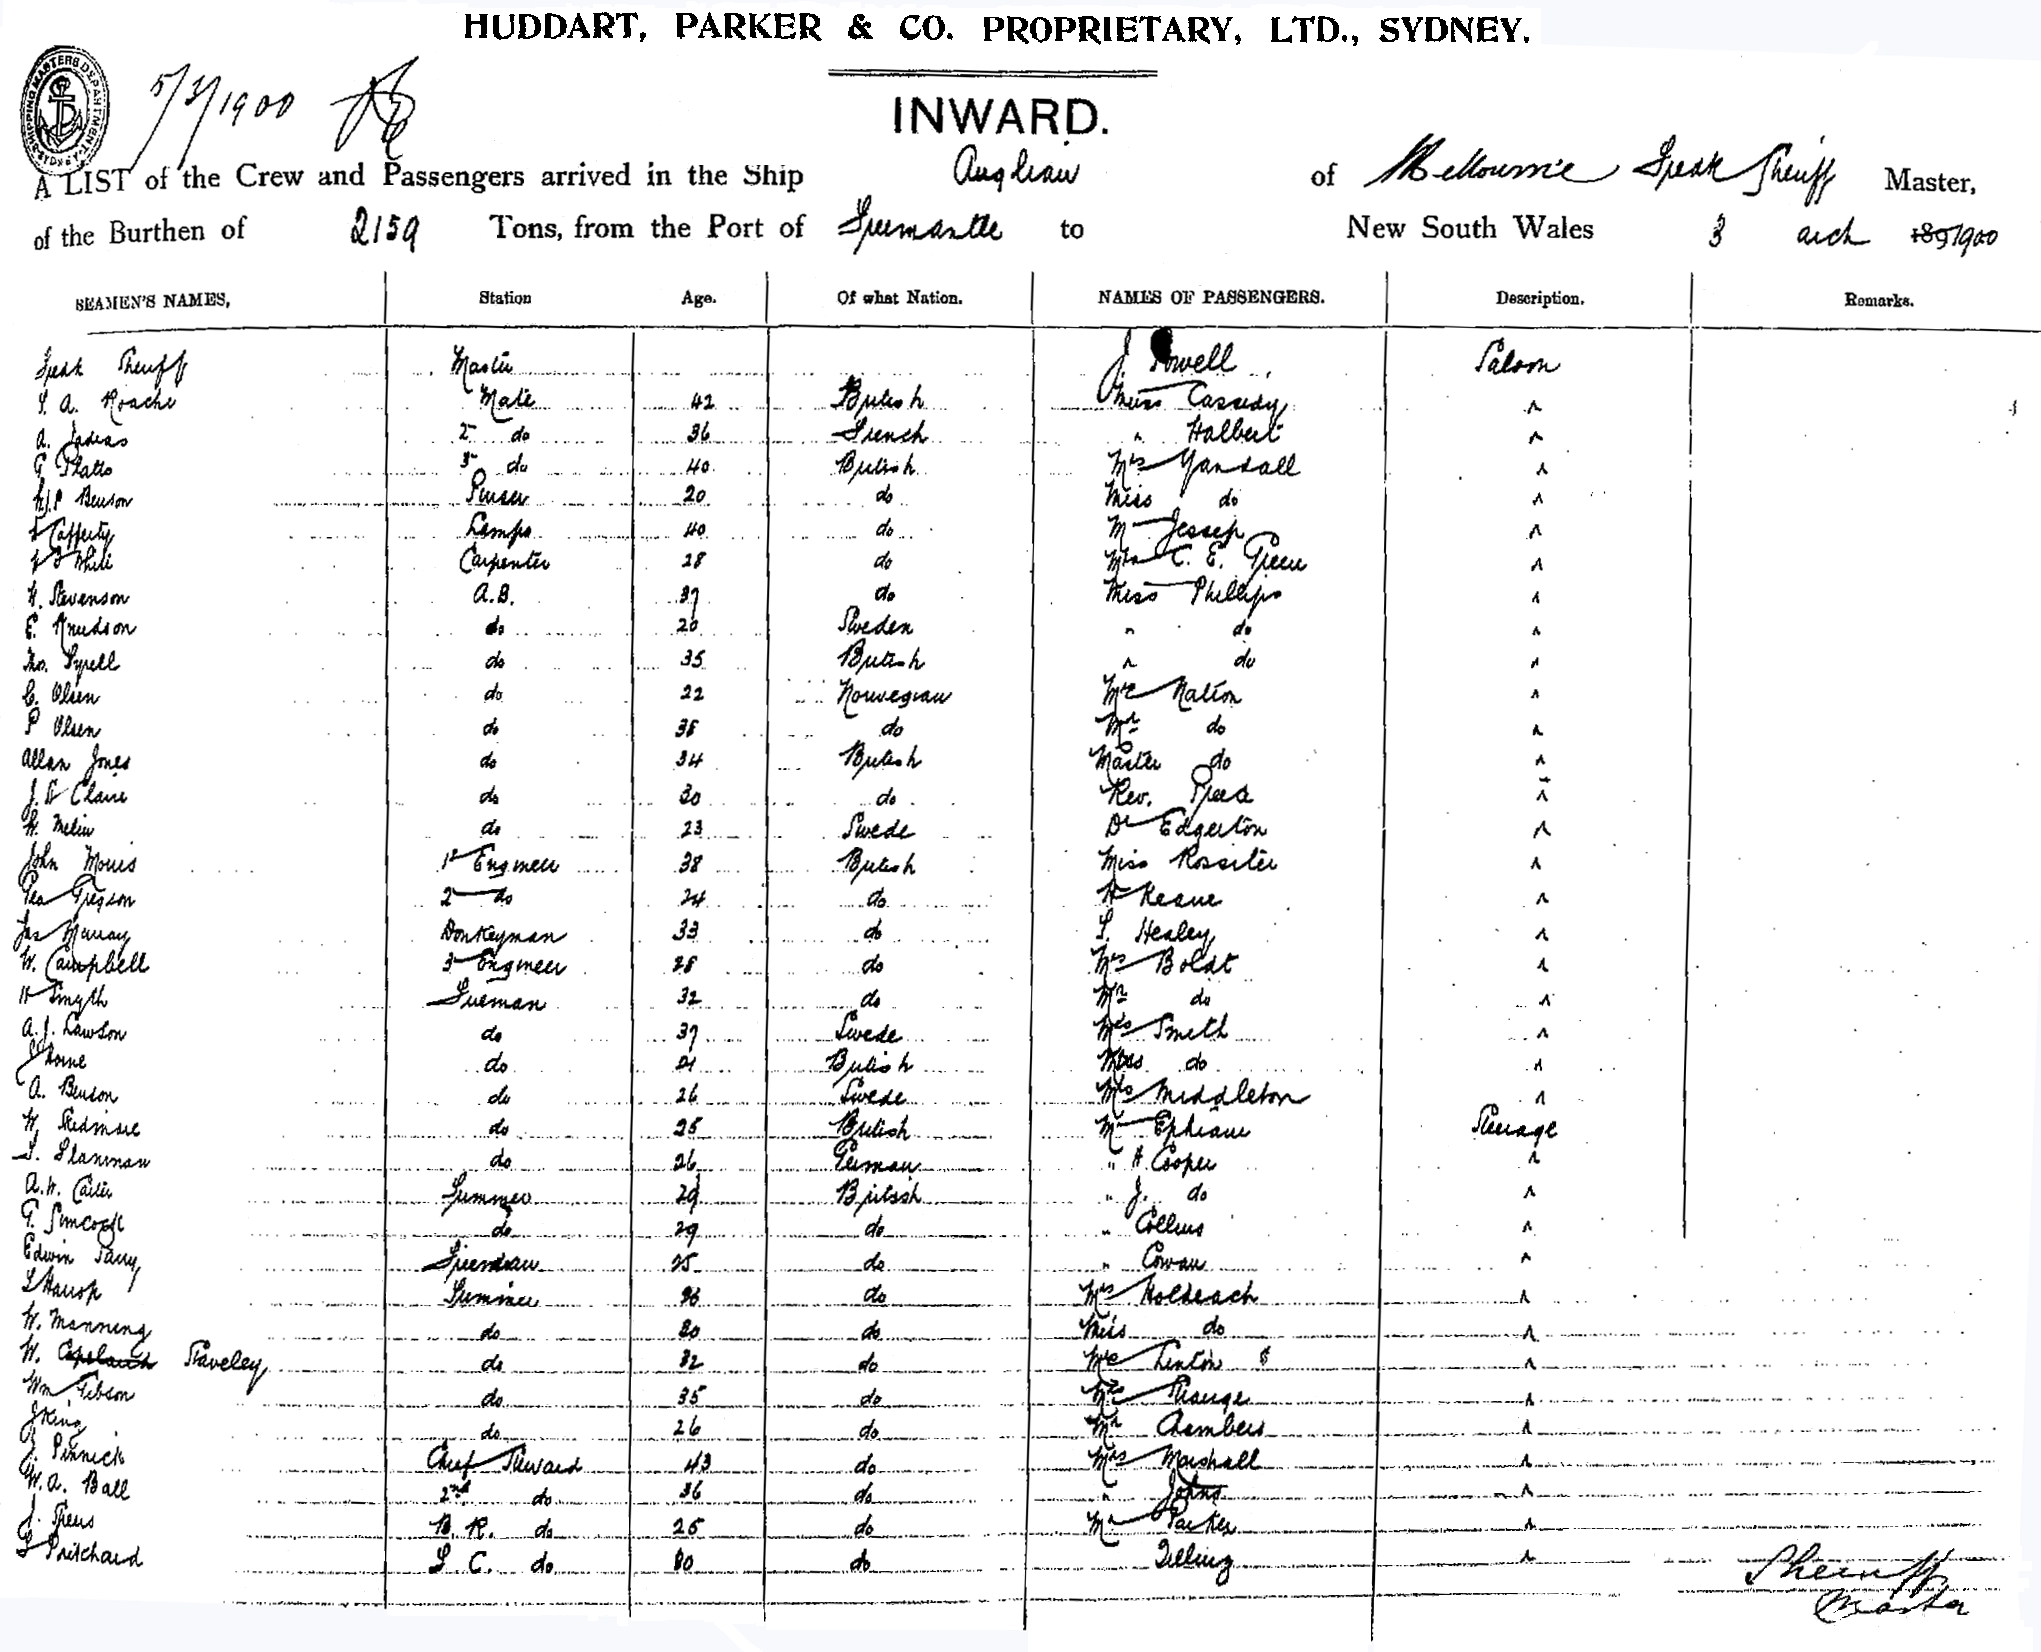 HUDDART, PARKER & CO. PROPRIETARY, LTD., SYDNEY.
SHIPPING MASTERS DEPARTMENT SYDNEY
5/3/1900
INWARD.
A LIST of the Crew and Passengers arrived in the Ship Anglian of Melbourne Speak Sheriff Master,
of the Burthen of 2159 Tons, from the Port of Fremantle to New South Wales 3 arch 1897 1900
SEAMEN'S NAMES, Station Age. Of what Nation. NAMES OF PASSENGERS. Description. Remarks.
Speak Sheriff Master J. Powell Saloon
Roache Mate 42 British Miss Cassidy "
A. 2 do 36 French " Halbert "
G Platts 3 do 40 British Mrs Yandall "
Benson Purser 20 do Miss do "
Cafferty Lamps 40 do Mr Jessep "
White Carpenter 28 do Mrs C. E. Green "
H. Stevenson A.B. 37 do Miss Phillips "
E. Knudson do 20 Sweden " do "
Tyrell do 35 British " do "
C. Olsen do 22 Norwegian Mr Nation "
P Olsen do 38 do Mrs do "
Allan Jones do 34 British Master do "
J. St Claire do 30 do Rev. "
H. Melin do 23 Swede Dr Edgerton "
John Morris 1st Engineer 38 British Miss Rossiter "
Geo Gregson 2 do 24 do H Keane "
Jas Murray Donkeyman 33 do Healey "
W. Campbell 3 Engineer 28 do Mrs Boldt "
H Smyth Fireman 32 do Mr do "
A. J. Lawson do 37 Swede Mrs Smith "
J Horne do 21 British Miss do "
A. Benson do 26 Swede Mrs Middleton "
W. Skidmore do 25 British Mr Ephraim Steerage
do 26 German " H Cooper "
A. W. Carter Trimmer 29 British " J. do "
G. Simcock do 29 do " Collins "
Edwin Parry Fireman 25 do " Cowan "
Harrop Trimmer 36 do Mrs Holdeach "
W. Manning do 30 do Miss do "
W. Copeland Staveley do 32 do Mr Linton "
Wm Gibson do 35 do Strange "
J King do 26 do Mr Chambers "
J. Pinnick Chief Steward 43 do Mrs Marshall "
W. A. Ball 2nd do 36 do " Johns "
J. B. R. do 25 do Mr Parker "
Pritchard S. C. do 30 do Tilling "
Sheriff
Master